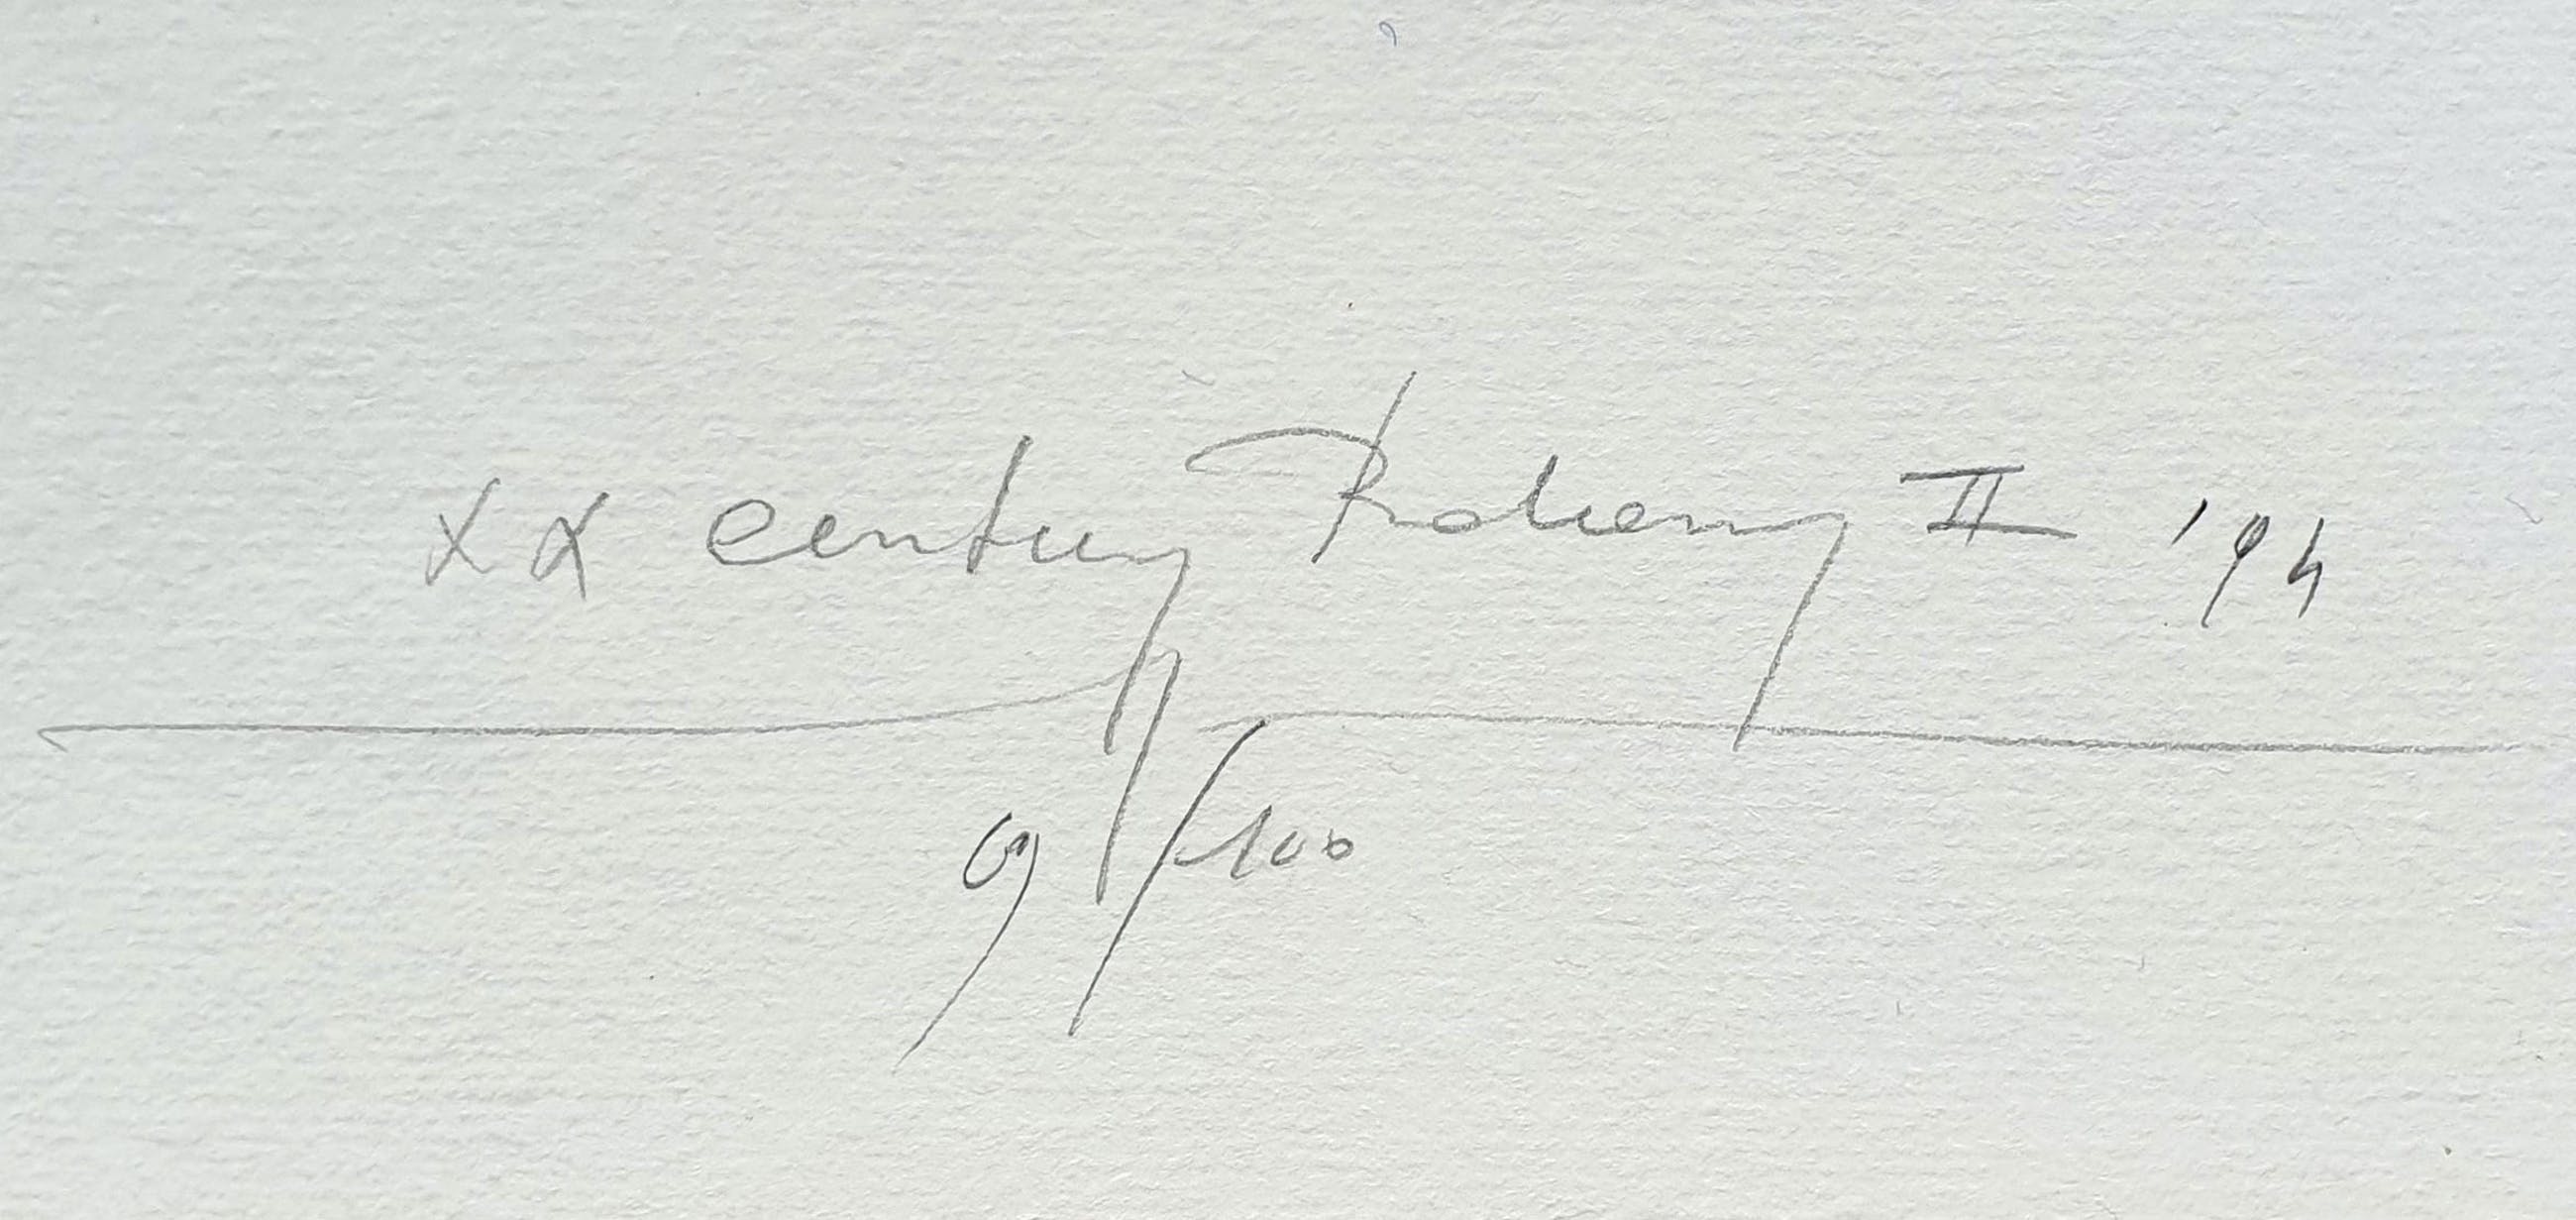 XX century Ptolemy II '94
9/100